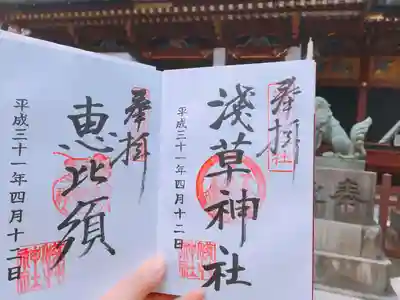 奉拝
淺草神社
平成三十一年四月十二日
奉拝
恵比須
平成三十一年四月十二日
奉